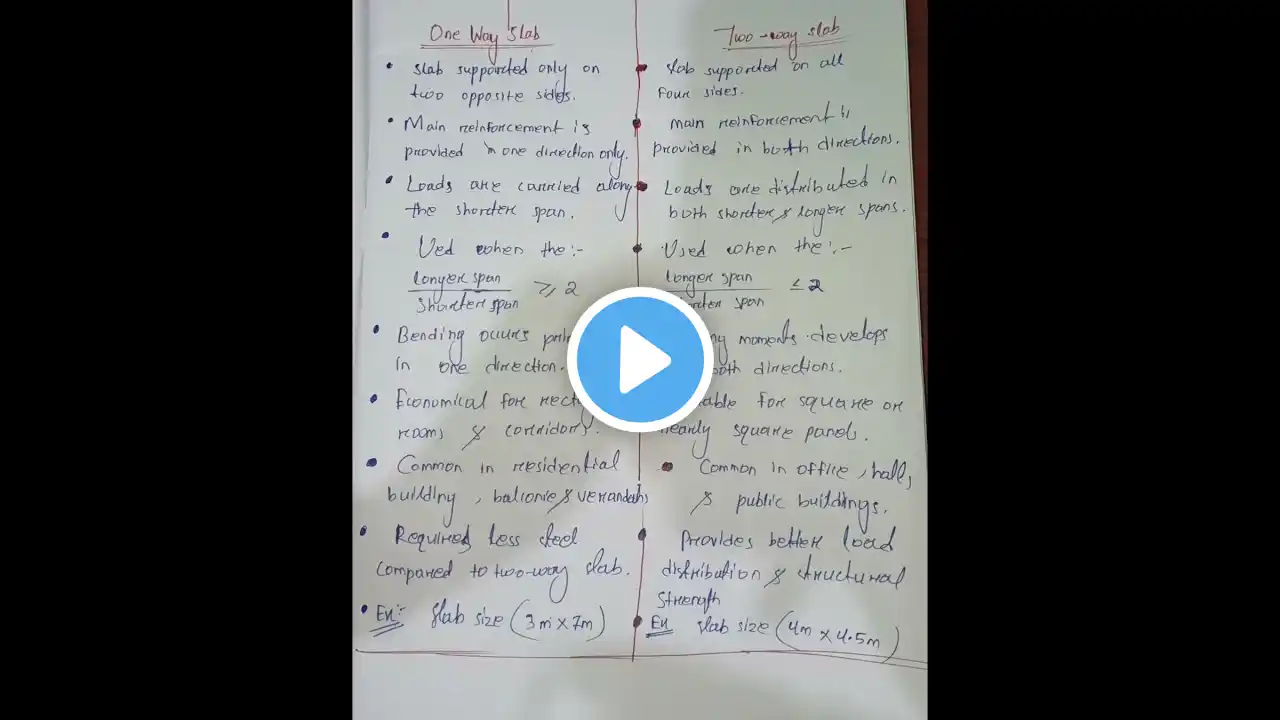 One Way Slab
• Slab supported only on
two opposite sides.
• Main reinforcement is
provided in one direction only.
• Loads are carried along
the shorter span.
• Ued when the:-
Longer span
Shorter span ≥ 2
• Bending occurs
in one direction.
• Economical for
rooms & corridors.
• Common in residential
building, balconie & verandahs
• Required Less steel
compared to two-way slab.
• Ex:- Slab size (3m x 7m)
Two-way slab
• Slab supported on all
Four sides.
• main reinforcement is
provided in both directions.
• Loads are distributed in
both shorter & longer spans.
• Used when the:-
Longer span
span ≤ 2
moments develops
both directions.
for square or
nearly square panels.
• Common in office, halls,
& public buildings.
• Provides better load
distribution & structural
Strength
• Ex slab size (4m x 4.5m)